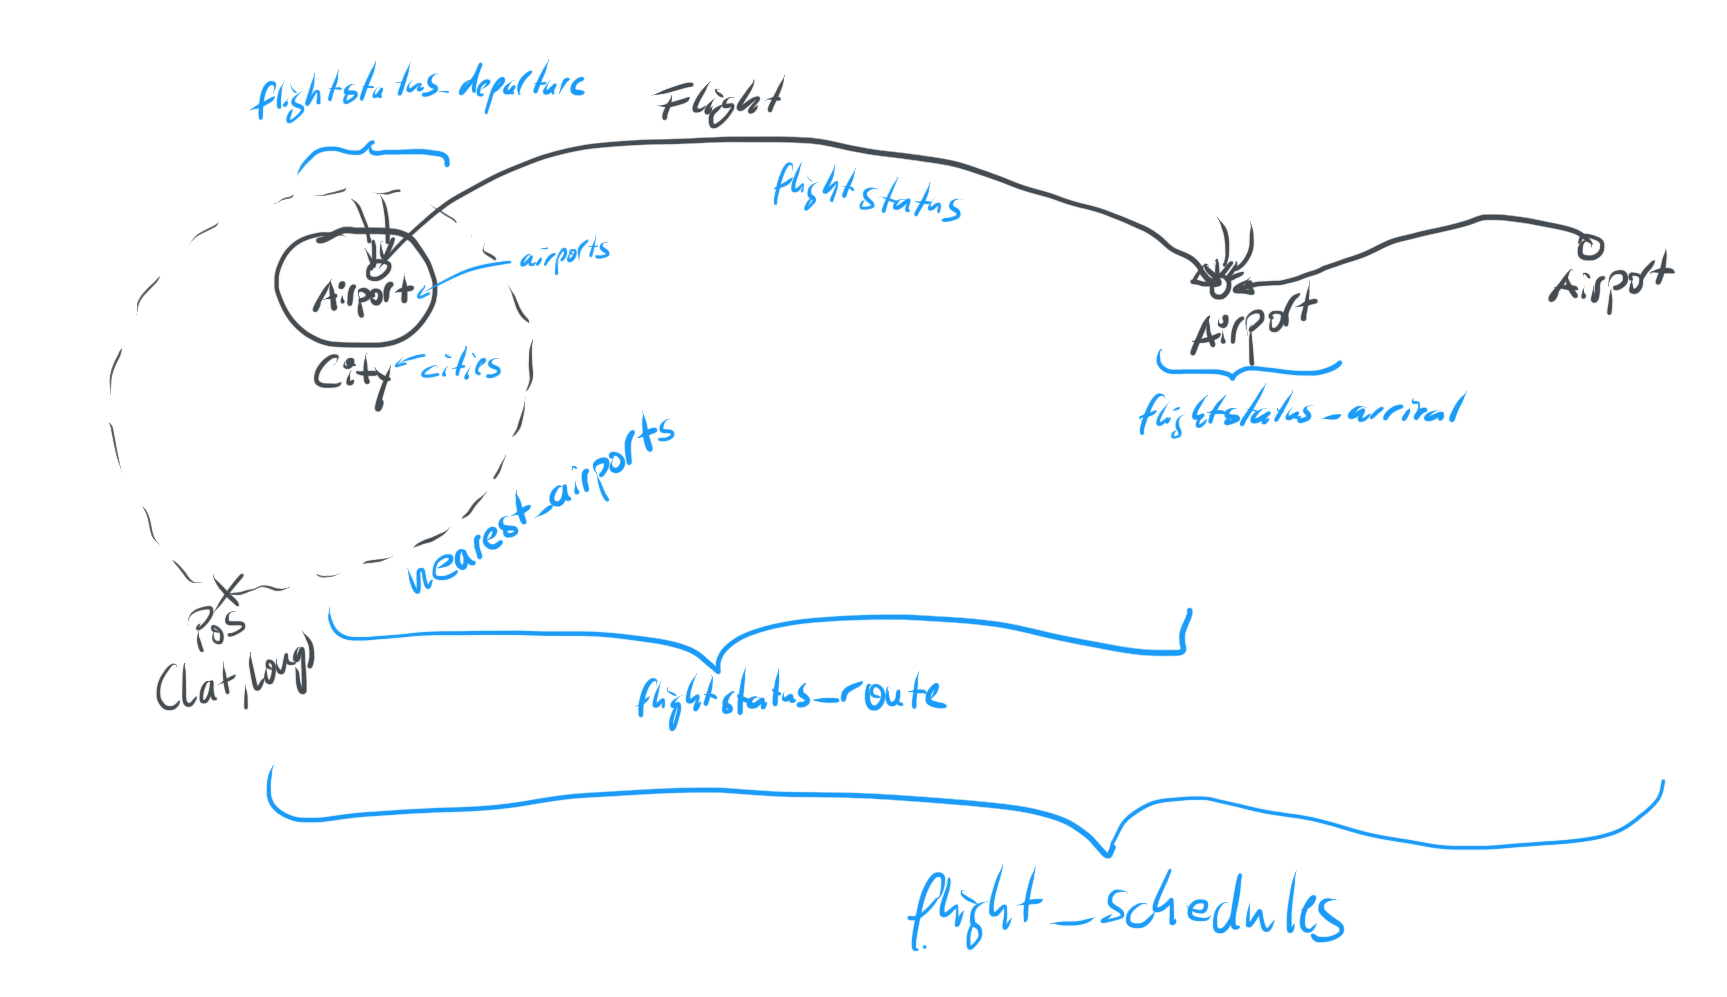 flightstatus_departure
Flight
flightstatus
airports
Airport
City
cities
Airport
Airport
flightstatus_arrival
nearest_airports
Pos
(lat, long)
flightstatus_route
flight_schedules